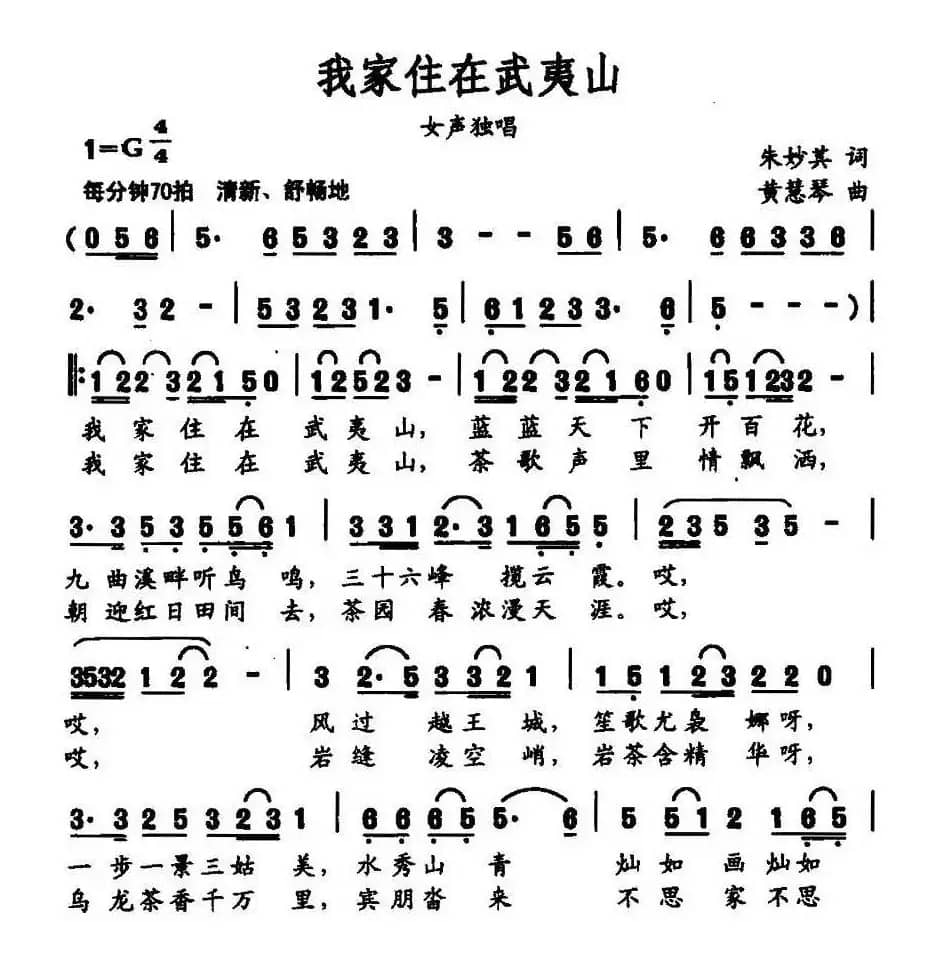 我家住在武夷山
女声独唱
1=G 4/4
朱妙其 词
每分钟70拍 清新、舒畅地
黄慧琴 曲
(0 5 6 | 5· 6 5 3 2 3 | 3 - - 5 6 | 5· 6 6 3 3 6 |
2· 3 2 - | 5 3 2 3 1· 5 | 6 1 2 3 3· 6 | 5 - - - ) |
‖: 1 2 2 3 2 1 5 0 | 1 2 5 2 3 - | 1 2 2 3 2 1 6 0 | 1 5 1 2 3 2 - |
我 家 住 在 武 夷 山, 蓝 蓝 天 下 开 百 花,
我 家 住 在 武 夷 山, 茶 歌 声 里 情 飘 洒,
3· 3 5 3 5 5 6 1 | 3 3 1 2· 3 1 6 5 5 | 2 3 5 3 5 - |
九 曲 溪 畔 听 鸟 鸣, 三 十 六 峰 揽 云 霞。 哎,
朝 迎 红 日 田 间 去, 茶 园 春 浓 漫 天 涯。 哎,
3 5 3 2 1 2 2 - | 3 2· 5 3 3 2 1 | 1 5 1 2 3 2 2 0 |
哎, 风 过 越 王 城, 笙 歌 尤 袅 娜 呀,
哎, 岩 缝 凌 空 峭, 岩 茶 含 精 华 呀,
3· 3 2 5 3 2 3 1 | 6 6 6 5 5· 6 | 5 5 1 2 1 6 5 |
一 步 一 景 三 姑 美, 水 秀 山 青 灿 如 画 灿 如
乌 龙 茶 香 千 万 里, 宾 朋 沓 来 不 思 家 不 思